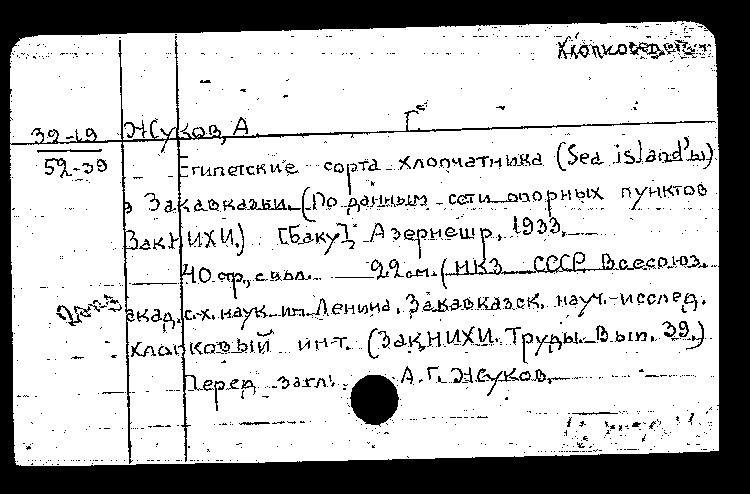 39-19
Жуков, А. Г.
52-39
Египетские сорта хлопчатника (Sea island'ы)
в Закавказьи. (По данным сети опорных пунктов
ЗакНИХИ.) [Баку], Азернешр, 1933.
40 стр., с илл. 22 см. (НКЗ СССР Всесоюз.
акад. с.-х. наук им. Ленина. Закавказск. науч.-исслед.
хлопковый ин-т. (ЗакНИХИ. Труды. Вып. 39.)
Перед загл: А. Г. Жуков.